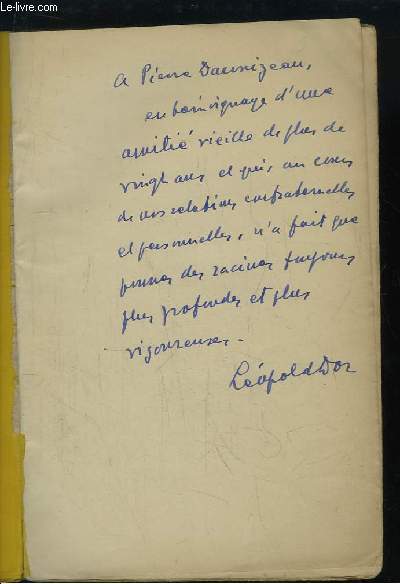 Le-livre.com
A Pierre Dauzizeau,
en témoignage d'une
amitié vieille de plus de
vingt ans et qui, au cours
de nos relations confraternelles
et personnelles, n'a fait que
pousser des racines toujours
plus profondes et plus
vigoureuses.
Léopold Dor
Le-livre.com